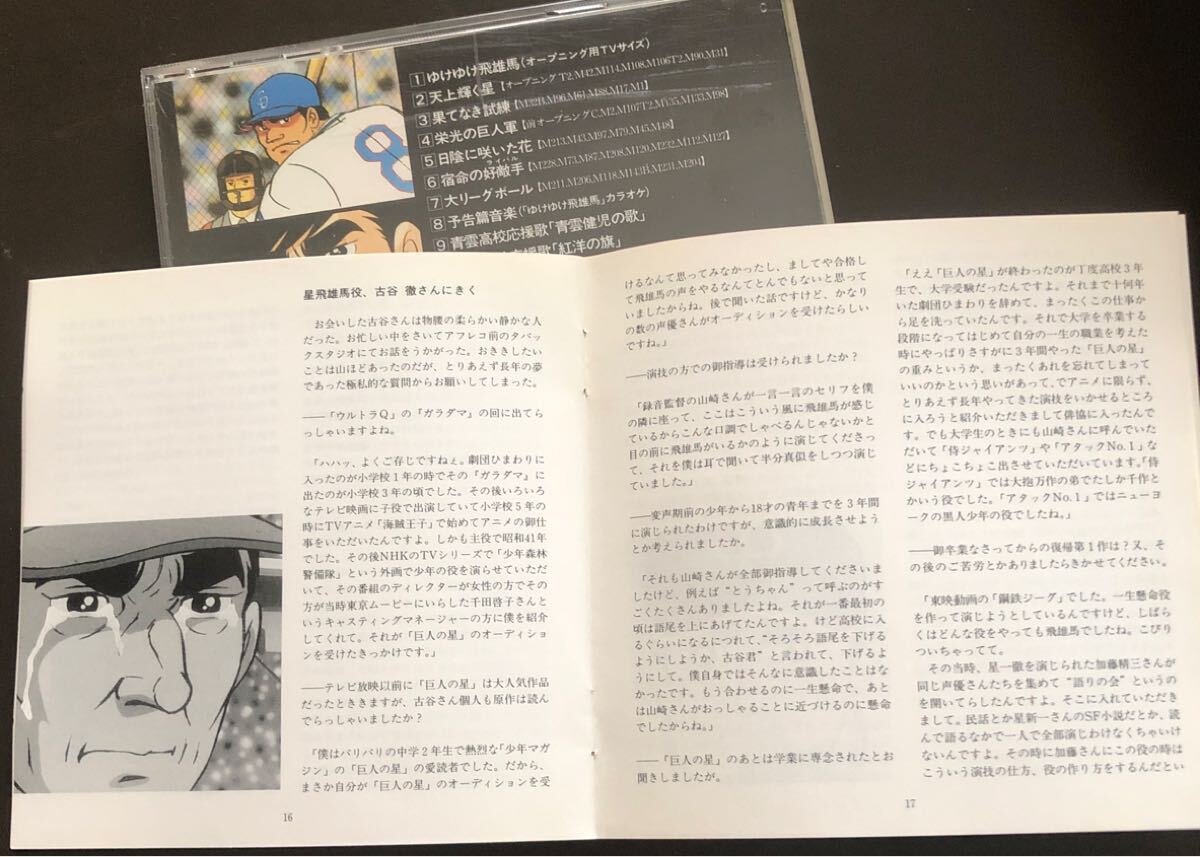 1 ゆけゆけ飛雄馬(オープニング用TVサイズ)
2 天上輝く星【オープニングT2.M42.M114.M108.M106T2.M90.M31】
3 果てなき試練【M32B.M96.M61.M88.M17.M1】
4 栄光の巨人軍【前オープニングC.M2.M107T2.M135.M133.M98】
5 日陰に咲いた花【M213.M43.M97.M79.M45.M48】
6 宿命の好敵手【M228.M73.M87.M208.M120.M232.M112.M127】
ライバル
7 大リーグボール【M211.M206.M118.M143H.M231.M204】
8 予告篇音楽(「ゆけゆけ飛雄馬」カラオケ)
9 青雲高校応援歌「青雲健児の歌」
応援歌「紅洋の旗」
星飛雄馬役、古谷 徹さんにきく
お会いした古谷さんは物腰の柔らかい静かな人
だった。お忙しい中をさいてアフレコ前のタバッ
クスタジオにてお話をうかがった。おききしたい
ことは山ほどあったのだが、とりあえず長年の夢
であった極私的な質問からお願いしてしまった。
——「ウルトラQ」の『ガラダマ』の回に出てら
っしゃいますよね。
「ハハッ、よくご存じですねぇ。劇団ひまわりに
入ったのが小学校1年の時でその『ガラダマ』に
出たのが小学校3年の頃でした。その後いろいろ
なテレビ映画に子役で出演していて小学校5年の
時にTVアニメ「海賊王子」で始めてアニメの御仕
事をいただいたんですよ。しかも主役で昭和41年
でした。その後NHKのTVシリーズで「少年森林
警備隊」という外画で少年の役を演らせていただ
いて、その番組のディレクターが女性の方でその
方が当時東京ムービーにいらした千田啓子さんと
いうキャスティングマネージャーの方に僕を紹介
してくれて。それが「巨人の星」のオーディショ
ンを受けたきっかけです。」
——テレビ放映以前に「巨人の星」は大人気作品
だったとききますが、古谷さん個人も原作は読ん
でらっしゃいましたか?
「僕はバリバリの中学2年生で熱烈な「少年マガ
ジン」の「巨人の星」の愛読者でした。だから、
まさか自分が「巨人の星」のオーディションを受
16
けるなんて思ってみなかったし、ましてや合格し
て飛雄馬の声をやるなんてとんでもないと思って
いましたからね。後で聞いた話ですけど、かなり
の数の声優さんがオーディションを受けたらしい
ですね。」
——演技の方での御指導は受けられましたか?
「録音監督の山崎さんが一言一言のセリフを僕
の隣に座って、ここはこういう風に飛雄馬が感じ
ているからこんな口調でしゃべるんじゃないかと
目の前に飛雄馬がいるかのように演じてくださっ
て、それを僕は耳で聞いて半分真似をしつつ演じ
ていました。」
——変声期前の少年から18才の青年までを3年間
に演じられたわけですが、意識的に成長させよう
とか考えられましたか。
「それも山崎さんが全部御指導してくださいま
したけど、例えば“とうちゃん”って呼ぶのがす
ごくたくさんありましたよね。それが一番最初の
頃は語尾を上にあげてたんですよ。けど高校に入
るぐらいになるにつれて、“そろそろ語尾を下げる
ようにしようか、古谷君”と言われて、下げるよ
うにして。僕自身ではそんなに意識したことはな
かったです。もう合わせるのに一生懸命で、あと
は山崎さんがおっしゃることに近づけるのに懸命
でしたからね。」
——「巨人の星」のあとは学業に専念されたとお
聞きしましたが。
「ええ「巨人の星」が終わったのが丁度高校3年
生で、大学受験だったんですよ。それまで十何年
いた劇団ひまわりを辞めて、まったくこの仕事か
ら足を洗っていたんです。それで大学を卒業する
段階になってはじめて自分の一生の職業を考えた
時にやっぱりさすがに3年間やった「巨人の星」
の重みというか、まったくあれを忘れてしまって
いいのかという思いがあって、でアニメに限らず、
とりあえず長年やってきた演技をいかせるところ
に入ろうと紹介いただきまして俳協に入ったんで
す。でも大学生のときにも山崎さんに呼んでいた
だいて「侍ジャイアンツ」や「アタックNo.1」な
どにちょこちょこ出させていただいています。「侍
ジャイアンツ」では大抱万作の弟でたしか千作と
かいう役でした。「アタックNo.1」ではニューヨ
ークの黒人少年の役でしたね。」
——御卒業なさってからの復帰第1作は?又、そ
の後のご苦労とかありましたらきかせてください。
「東映動画の「鋼鉄ジーグ」でした。一生懸命役
を作って演じようとしているんですけど、しばら
くはどんな役をやっても飛雄馬でしたね。こびり
ついちゃってて。
その当時、星一徹を演じられた加藤精三さんが
同じ声優さんたちを集めて“語りの会”というの
を開いてらしたんですよ。そこに入れていただき
まして。民話とか星新一さんのSF小説だとか、読
んで語るなかで一人で全部演じわけなくちゃいけ
ないんですよ。その時に加藤さんにこの役の時は
こういう演技の仕方、役の作り方をするんだとい
17